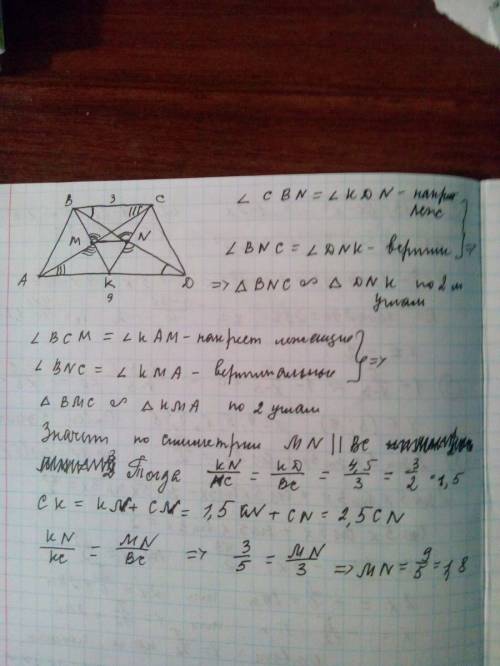 B 3 C
M N
A K D
9
∠ CBN = ∠ KDN - накрест леж
∠ BNC = ∠ DNK - вертик
=> △ BNC ∽ △ DNK по 2м углам
∠ BCM = ∠ KAM - накрест лежащие
∠ BNC = ∠ KMA - вертикальные } =>
△ BMC ∽ △ KMA по 2 углам
Значит по симметрии MN || BC
Тогда KN/NC = KD/BC = 4,5/3 = 3/2 = 1,5
CK = KN + CN = 1,5 CN + CN = 2,5CN
KN/KC = MN/BC => 3/5 = MN/3 => MN = 9/5 = 1,8